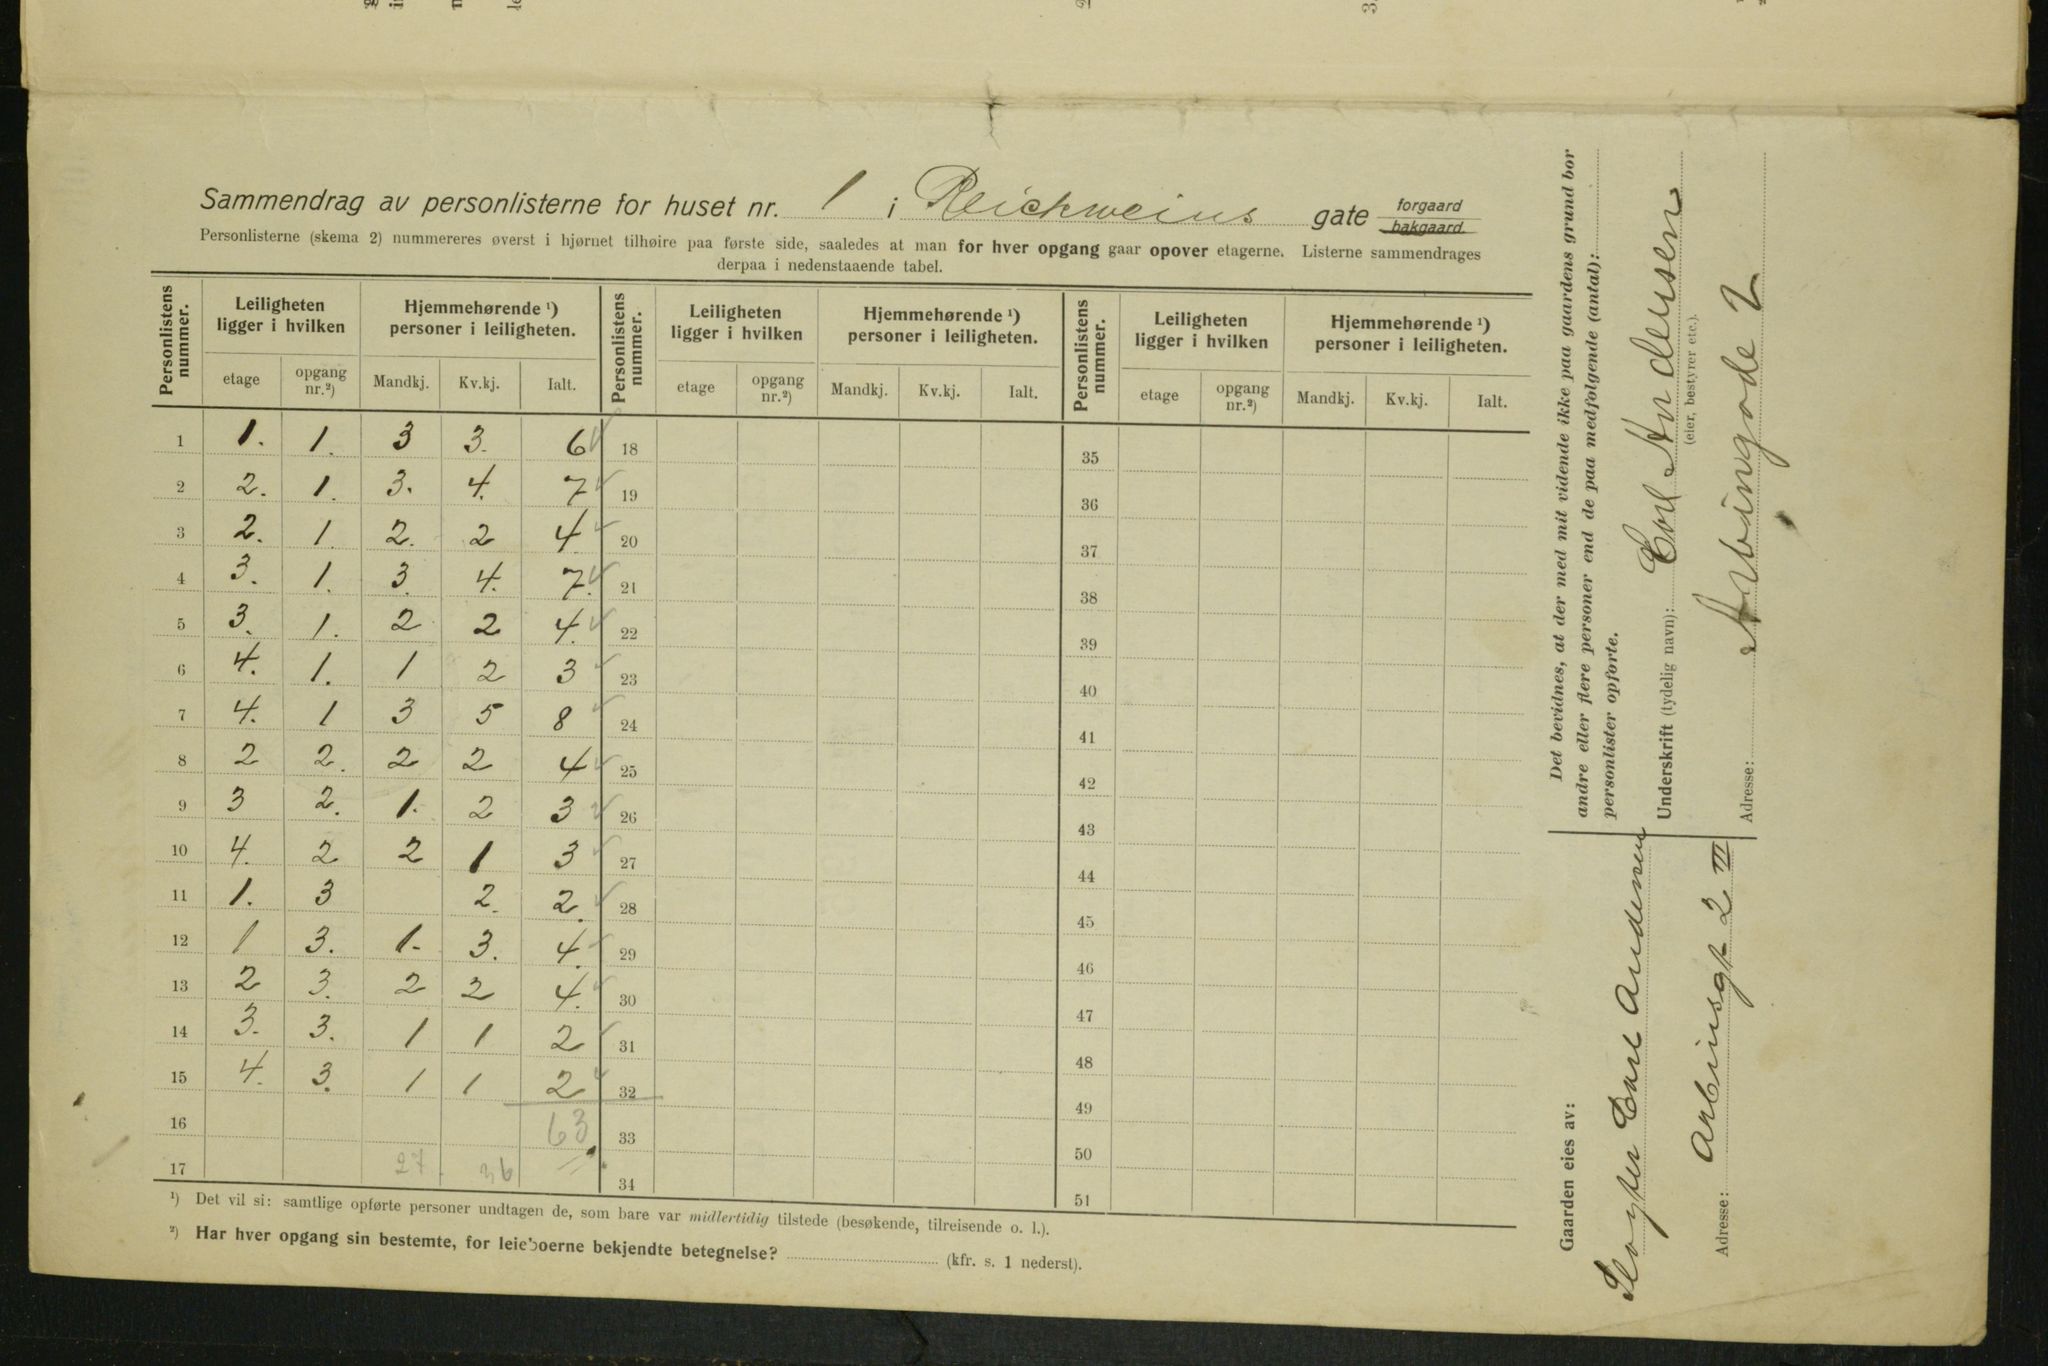 Sammendrag av personlisterne for huset nr. 1 i Reichweins gate forgaard bakgaard.
Personlisterne (skema 2) nummereres øverst i hjørnet tilhøire paa første side, saaledes at man for hver opgang gaar opover etagerne. Listerne sammendrages
derpaa i nedenstaaende tabel.
Personlistens nummer. Leiligheten ligger i hvilken Hjemmehørende ¹) personer i leiligheten. Personlistens nummer. Leiligheten ligger i hvilken Hjemmehørende ¹) personer i leiligheten. Personlistens nummer. Leiligheten ligger i hvilken Hjemmehørende ¹) personer i leiligheten.
etage opgang nr.²) Mandkj. Kv.kj. Ialt. etage opgang nr.²) Mandkj. Kv.kj. Ialt. etage opgang nr.²) Mandkj. Kv.kj. Ialt.
1 1. 1. 3 3. 6 18 35
2 2. 1. 3. 4. 7 19 36
3 2. 1. 2. 2 4. 20 37
4 3. 1. 3. 4. 7. 21 38
5 3. 1. 2 2 4. 22 39
6 4. 1. 1 2 3 23 40
7 4. 1 3 5 8 24 41
8 2 2. 2 2 4 25 42
9 3 2. 1. 2 3 26 43
10 4. 2 2 1 3 27 44
11 1. 3 2. 2. 28 45
12 1 3. 1. 3. 4. 29 46
13 2 3. 2 2 4. 30 47
14 3. 3. 1 1 2 31 48
15 4. 3. 1 1 2 32 49
16 63 33 50
17 27. 36 34 51
¹) Det vil si: samtlige opførte personer undtagen de, som bare var midlertidig tilstede (besøkende, tilreisende o. l.).
²) Har hver opgang sin bestemte, for leieboerne bekjendte betegnelse? (kfr. s. 1 nederst).
Det bevidnes, at der med mit vidende ikke paa gaardens grund bor
andre eller flere personer end de paa medfølgende (antal):
personlister opførte.
Underskrift (tydelig navn): Carl Andersen
(eier, bestyrer etc.).
Adresse: Arbingade 2
Gaarden eies av:
Carl Andersen
Adresse: Arbinsgt 2 III